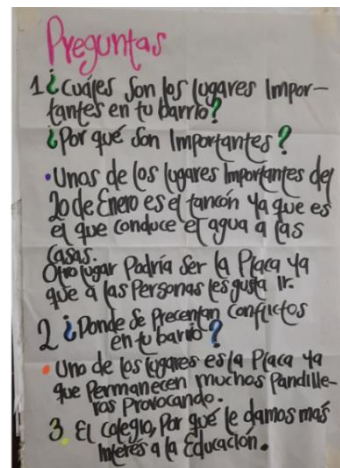 Preguntas
1 ¿Cuáles Son los lugares Impor-
tantes en tu barrio?
¿Por qué Son Importantes?
• Unos de los lugares Importantes del
20 de Enero es el tancón ya que es
el que conduce el agua a las
Casas.
Otro lugar Podría Ser la Placa ya
que a las Personas les gusta Ir.
2 ¿Donde Se Precentan Conflictos
en tu barrio?
• Uno de los lugares es la Placa ya
que Permanecen muchos Pandille-
ros Provocando.
3. El colegio, Por qué le damos más
Interes a la Educación.